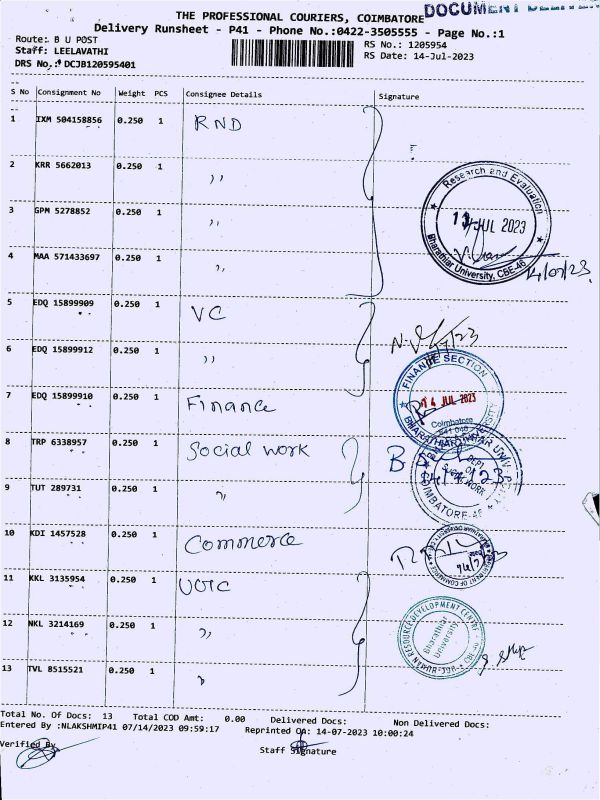 DOCUMENT
THE PROFESSIONAL COURIERS, COIMBATORE
Delivery Runsheet - P41 - Phone No.:0422-3505555 - Page No.:1
Route: B U POST
RS No.: 1205954
Staff: LEELAVATHI
RS Date: 14-Jul-2023
DRS No.: DCJB120595401
S No Consignment No Weight PCS Consignee Details Signature
1 IXM 504158856 0.250 1 RND
2 KRR 5662013 0.250 1 ,,
3 GPM 5278852 0.250 1 ,,
4 MAA 571433697 0.250 1 ,,
Research and Evaluation
JUL 2023
Bharathiar University, CBE-46
14/07/23
5 EDQ 15899909 0.250 1 VC
6 EDQ 15899912 0.250 1 ,,
7 EDQ 15899910 0.250 1 Finance
FINANCE SECTION
14 JUL 2023
Coimbatore
641 046
8 TRP 6338957 0.250 1 Social work
DEPT OF
SOCIAL WORK
COIMBATORE-46
9 TUT 289731 0.250 1 ,,
10 KDI 1457528 0.250 1 Commerce
11 KKL 3135954 0.250 1 UOIC
12 NKL 3214169 0.250 1 ,,
RESOURCE DEVELOPMENT CENTRE
Bharathiar
University
13 TVL 8515521 0.250 1 ,,
Total No. Of Docs: 13 Total COD Amt: 0.00 Delivered Docs: Non Delivered Docs:
Entered By :NLAKSHMIP41 07/14/2023 09:59:17 Reprinted On: 14-07-2023 10:00:24
Verified By
Staff Signature